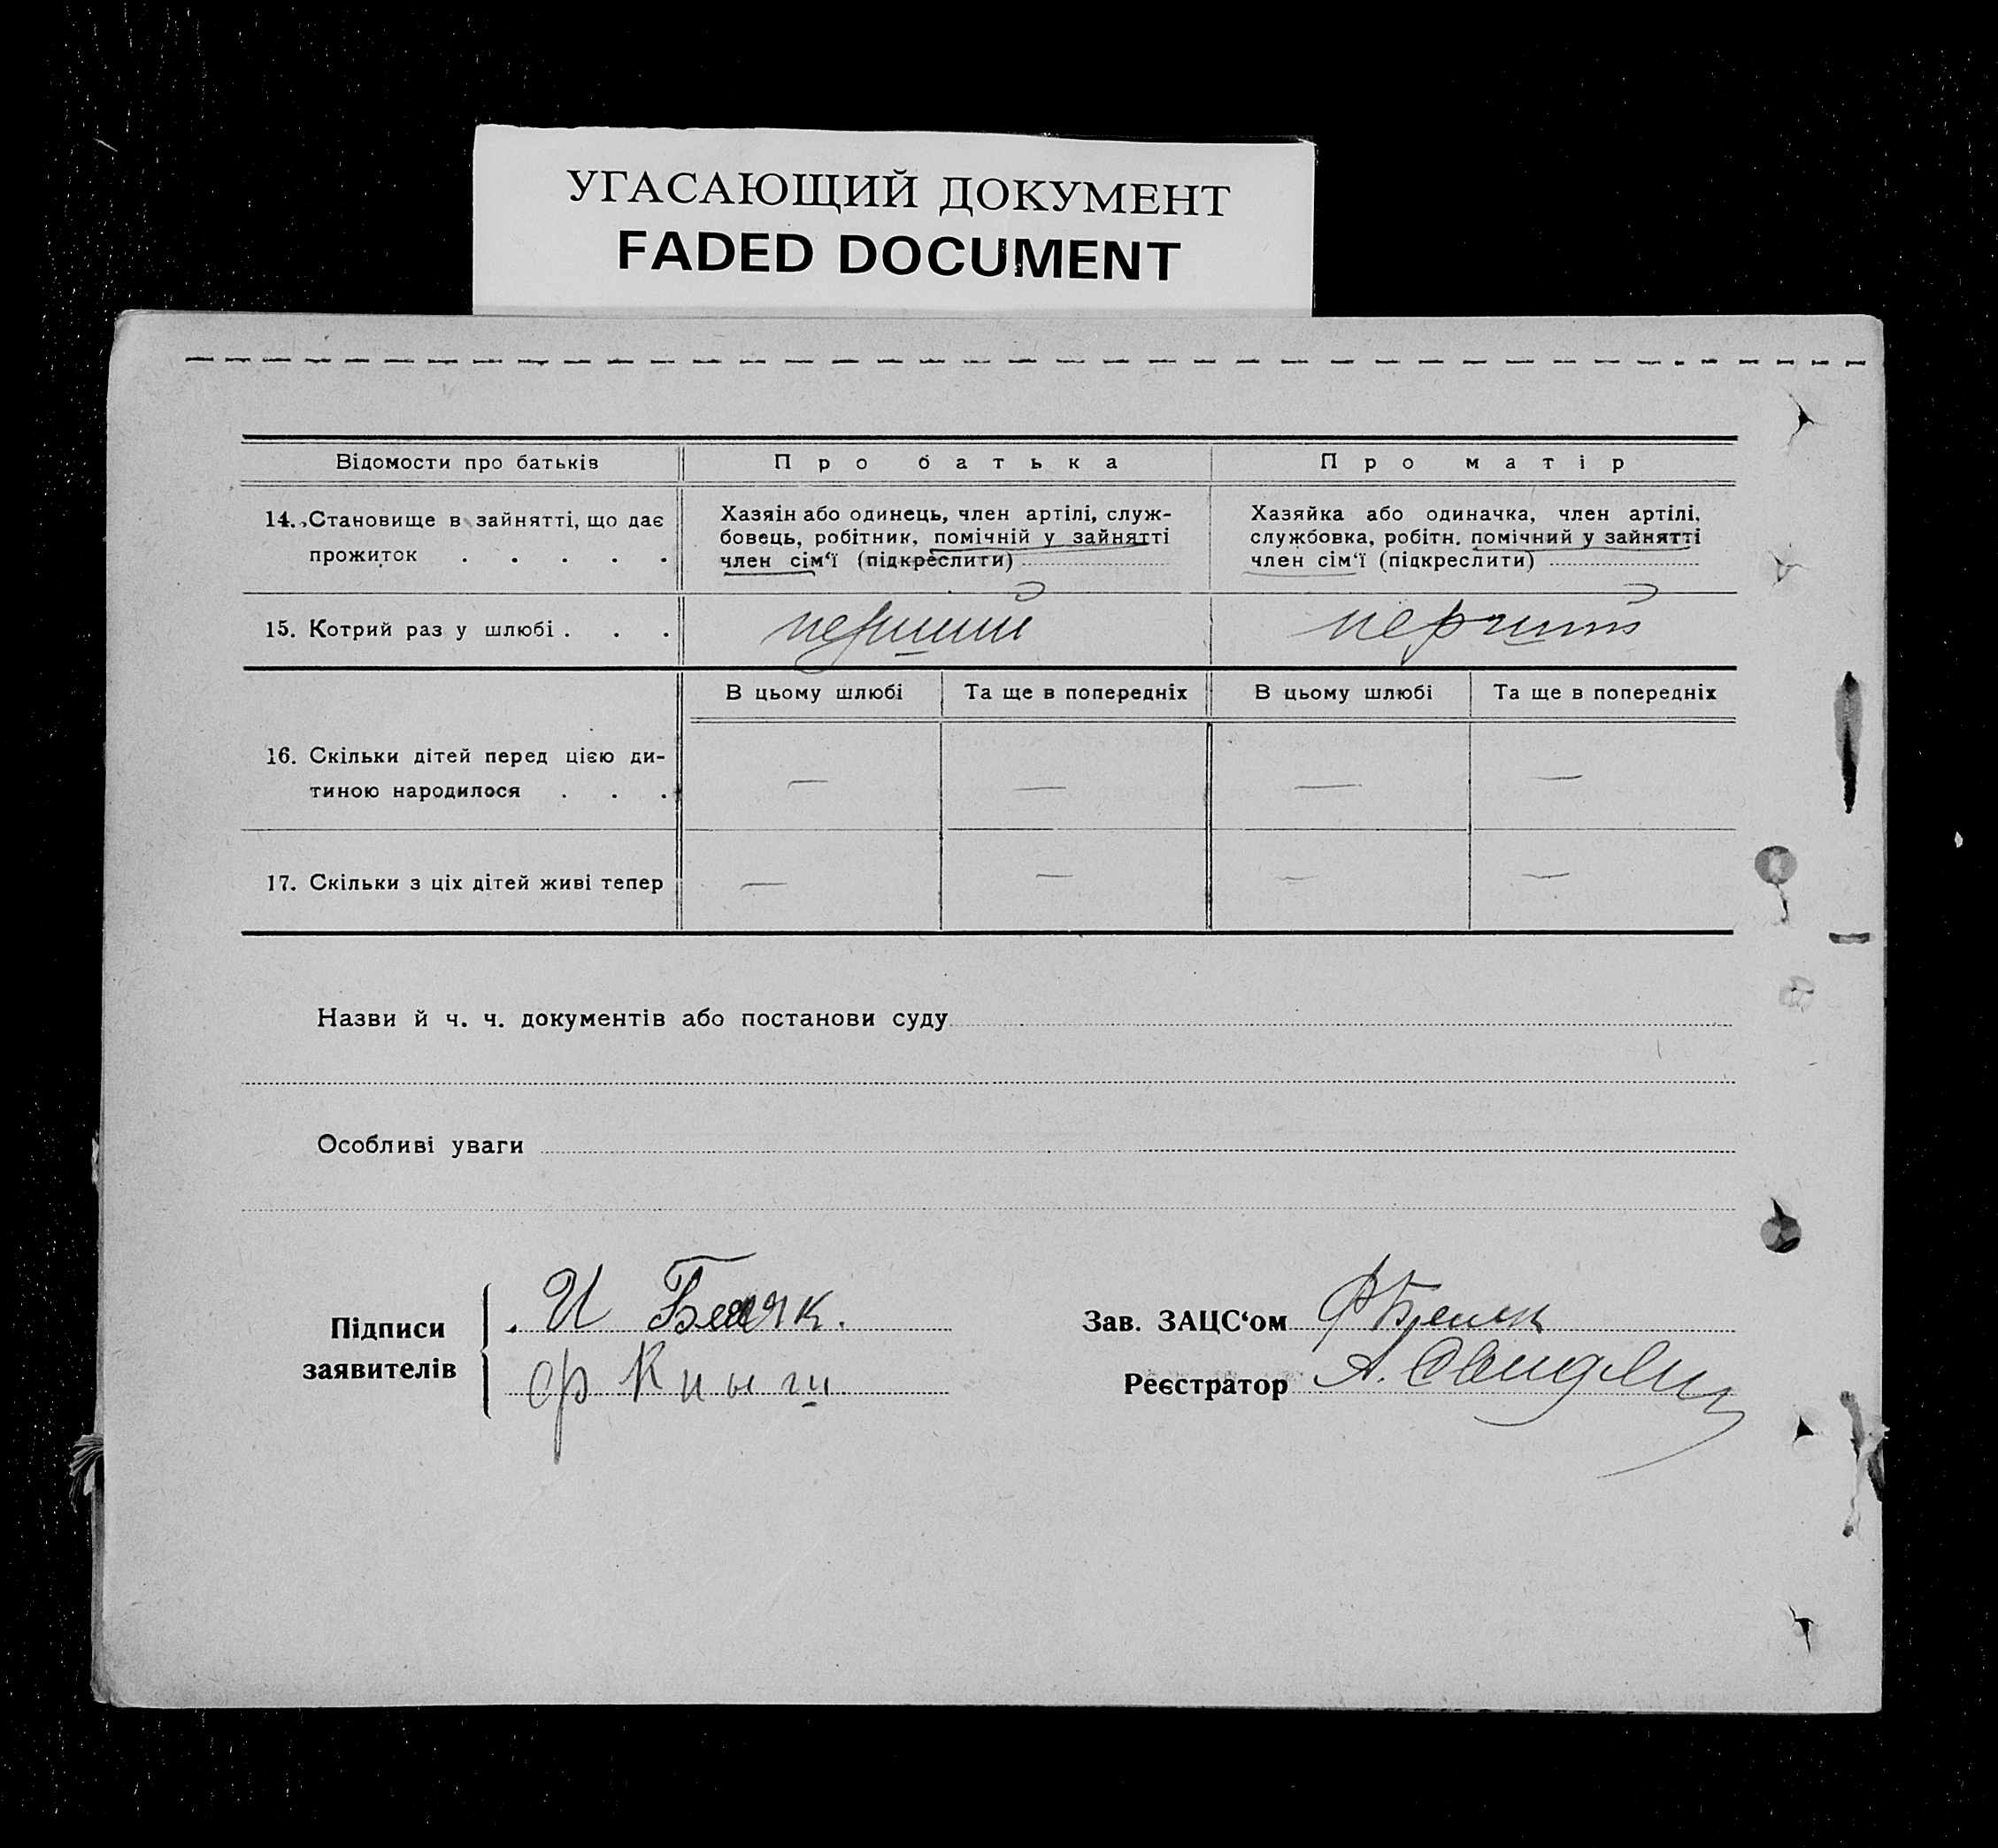 УГАСАЮЩИЙ ДОКУМЕНТ
FADED DOCUMENT
Відомости про батьків
Про батька
Про матір
14. Становище в зайнятті, що дає
прожиток . . . . .
Хазяін або одинець, член артілі, служ-
бовець, робітник, помічній у зайнятті
член сім‘ї (підкреслити)
Хазяйка або одиначка, член артілі,
службовка, робітн. помічний у зайнятті
член сім‘ї (підкреслити)
15. Котрий раз у шлюбі . . .
перший
перший
В цьому шлюбі
Та ще в попередніх
В цьому шлюбі
Та ще в попередніх
16. Скільки дітей перед цією ди-
тиною народилося . . .
— — — —
17. Скільки з ціх дітей живі тепер
— — — —
Назви й ч. ч. документів або постанови суду
Особливі уваги
Підписи
заявителів
И
ф Кныш
Зав. ЗАЦС‘ом Ф
Реєстратор А.